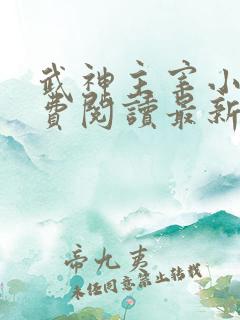 武神主宰小
費閱讀最新
帝九夷
未经同意禁止转载